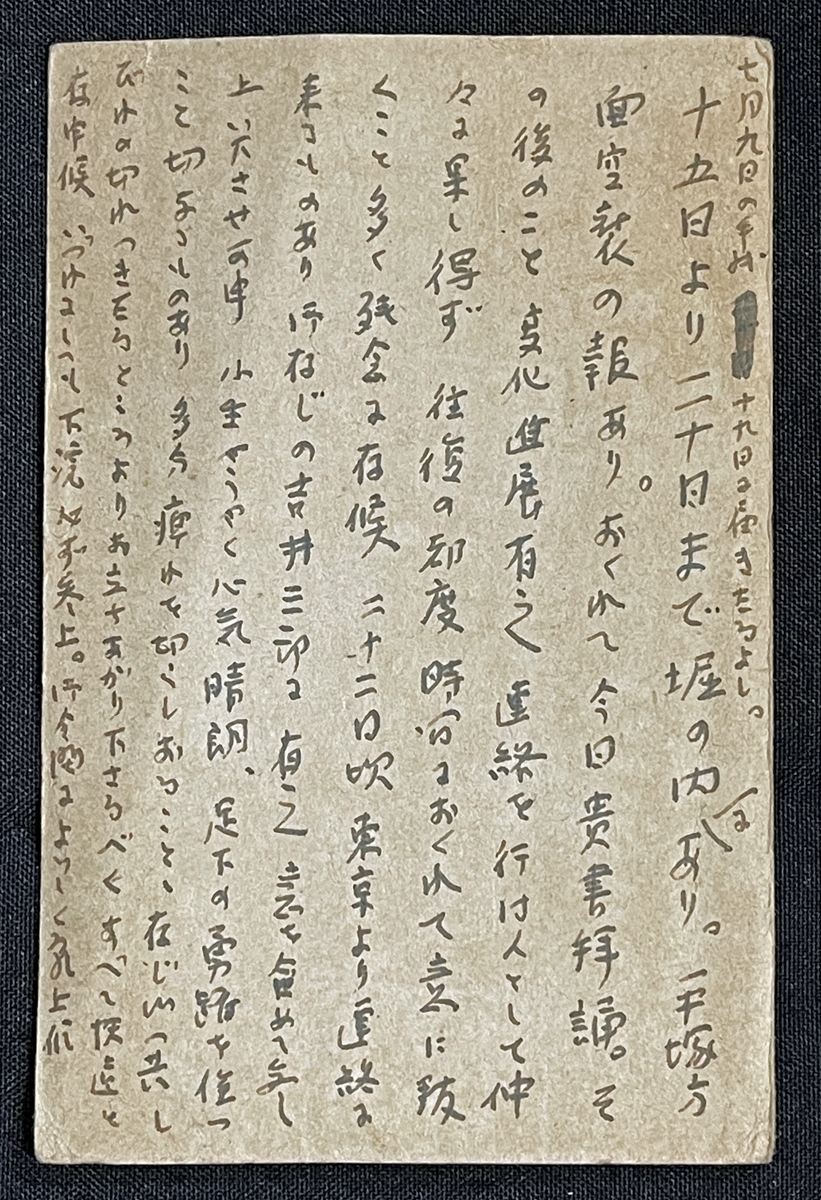 七月九日の手紙 十九日に届きたるよし。
十五日より二十日まで堀の内にあり。平塚方
面空襲の報あり。おくれて今日貴書拝誦。そ
の後のこと変化進展有之 連絡を行はんとして仲
々に果し得ず 往復の都度時間におくれて意に
くこと多く残念に存候 二十二日吹 東京より連絡に
来るものあり 御存じの吉井三郎に有之 意を含めて
上いたさせ可申 小生やうやく心気晴朗、足下の勇躍を
こと切なるものあり 多分痺れを切らしおることゝ存じ
びれの切れつきたるところよりお立ちあがり下さるべく すべて
存申候 いづれにしても下浣必ず参上。 よろしく